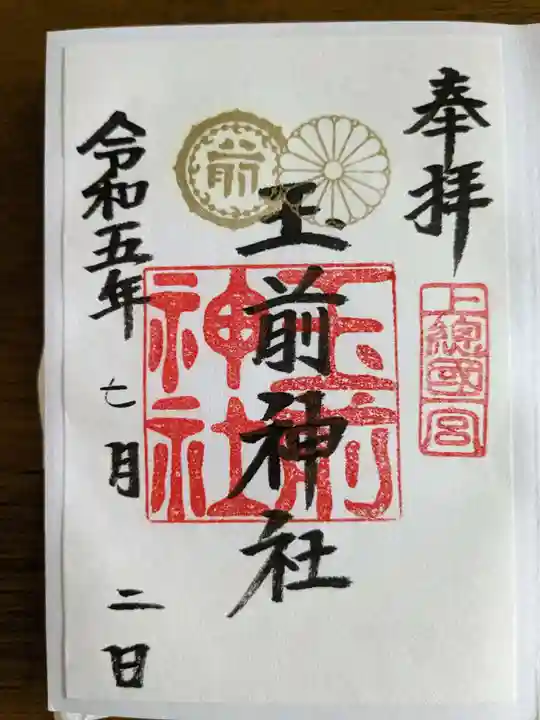 奉拝
上總國宮
前
玉前神社
玉前神社
令和五年
七月二日